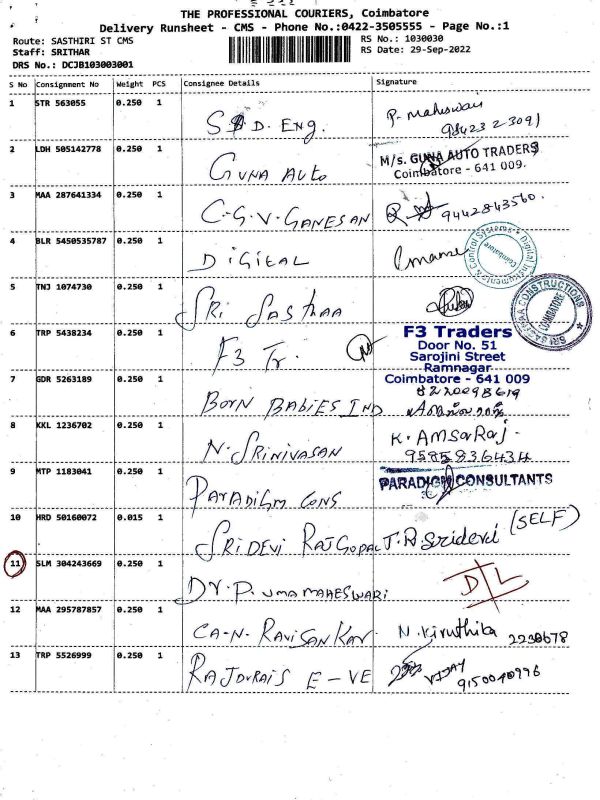 THE PROFESSIONAL COURIERS, Coimbatore
Delivery Runsheet - CMS - Phone No.:0422-3505555 - Page No.:1
Route: SASTHIRI ST CMS RS No.: 1030030
Staff: SRITHAR RS Date: 29-Sep-2022
DRS No.: DCJB103003001
S No Consignment No Weight PCS Consignee Details Signature
1 STR 563055 0.250 1 P. maheswari
D. Eng. 9842323091
2 LDH 505142778 0.250 1 M/s. GUNA AUTO TRADERS
GUNA AUTO Coimbatore - 641 009.
3 MAA 287641334 0.250 1
C.G.V. GANESAN 9442843560.
4 BLR 5450535787 0.250 1
DIGITAL
Digital Instruments & Control Systems
Coimbatore
5 TNJ 1074730 0.250 1
SRI SASTHAA
SRI SASTHAA CONSTRUCTIONS
COIMBATORE
6 TRP 5438234 0.250 1 F3 Traders
F3 Tr. Door No. 51
Sarojini Street
Ramnagar
7 GDR 5263189 0.250 1 Coimbatore - 641 009
BORN BABIES IND
8 KKL 1236702 0.250 1 K. AMSARAJ.
N. SRINIVASAN 9585836434
9 MTP 1183041 0.250 1 PARADIGM CONSULTANTS
PARADIGM CONS
10 HRD 50160072 0.015 1 (SELF)
SRIDEVI RAJGOPAL T.R. Sridevi
11 SLM 304243669 0.250 1 D/L
Dr. P. UMAMAHESWARI
12 MAA 295787857 0.250 1
CA-N. RAVISANKAR. N. Kiruthika 2230678
13 TRP 5526999 0.250 1
RAJDURAIS E-VE VIJAY
9150040996